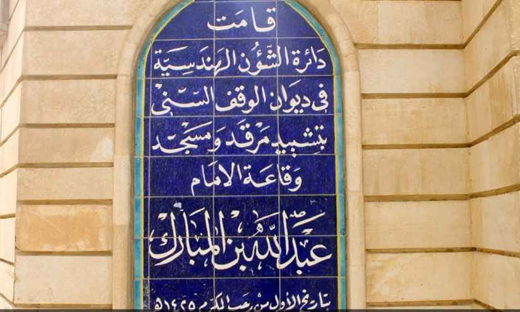 قامت
دائرة الشؤن الهندسية
في ديوان الوقف السني
بتشييد مرقد ومسجد
وقاعة الامام
عبد الله بن المبارك
بتاريخ الأول من رجب المكرم ١٤٢٥ه